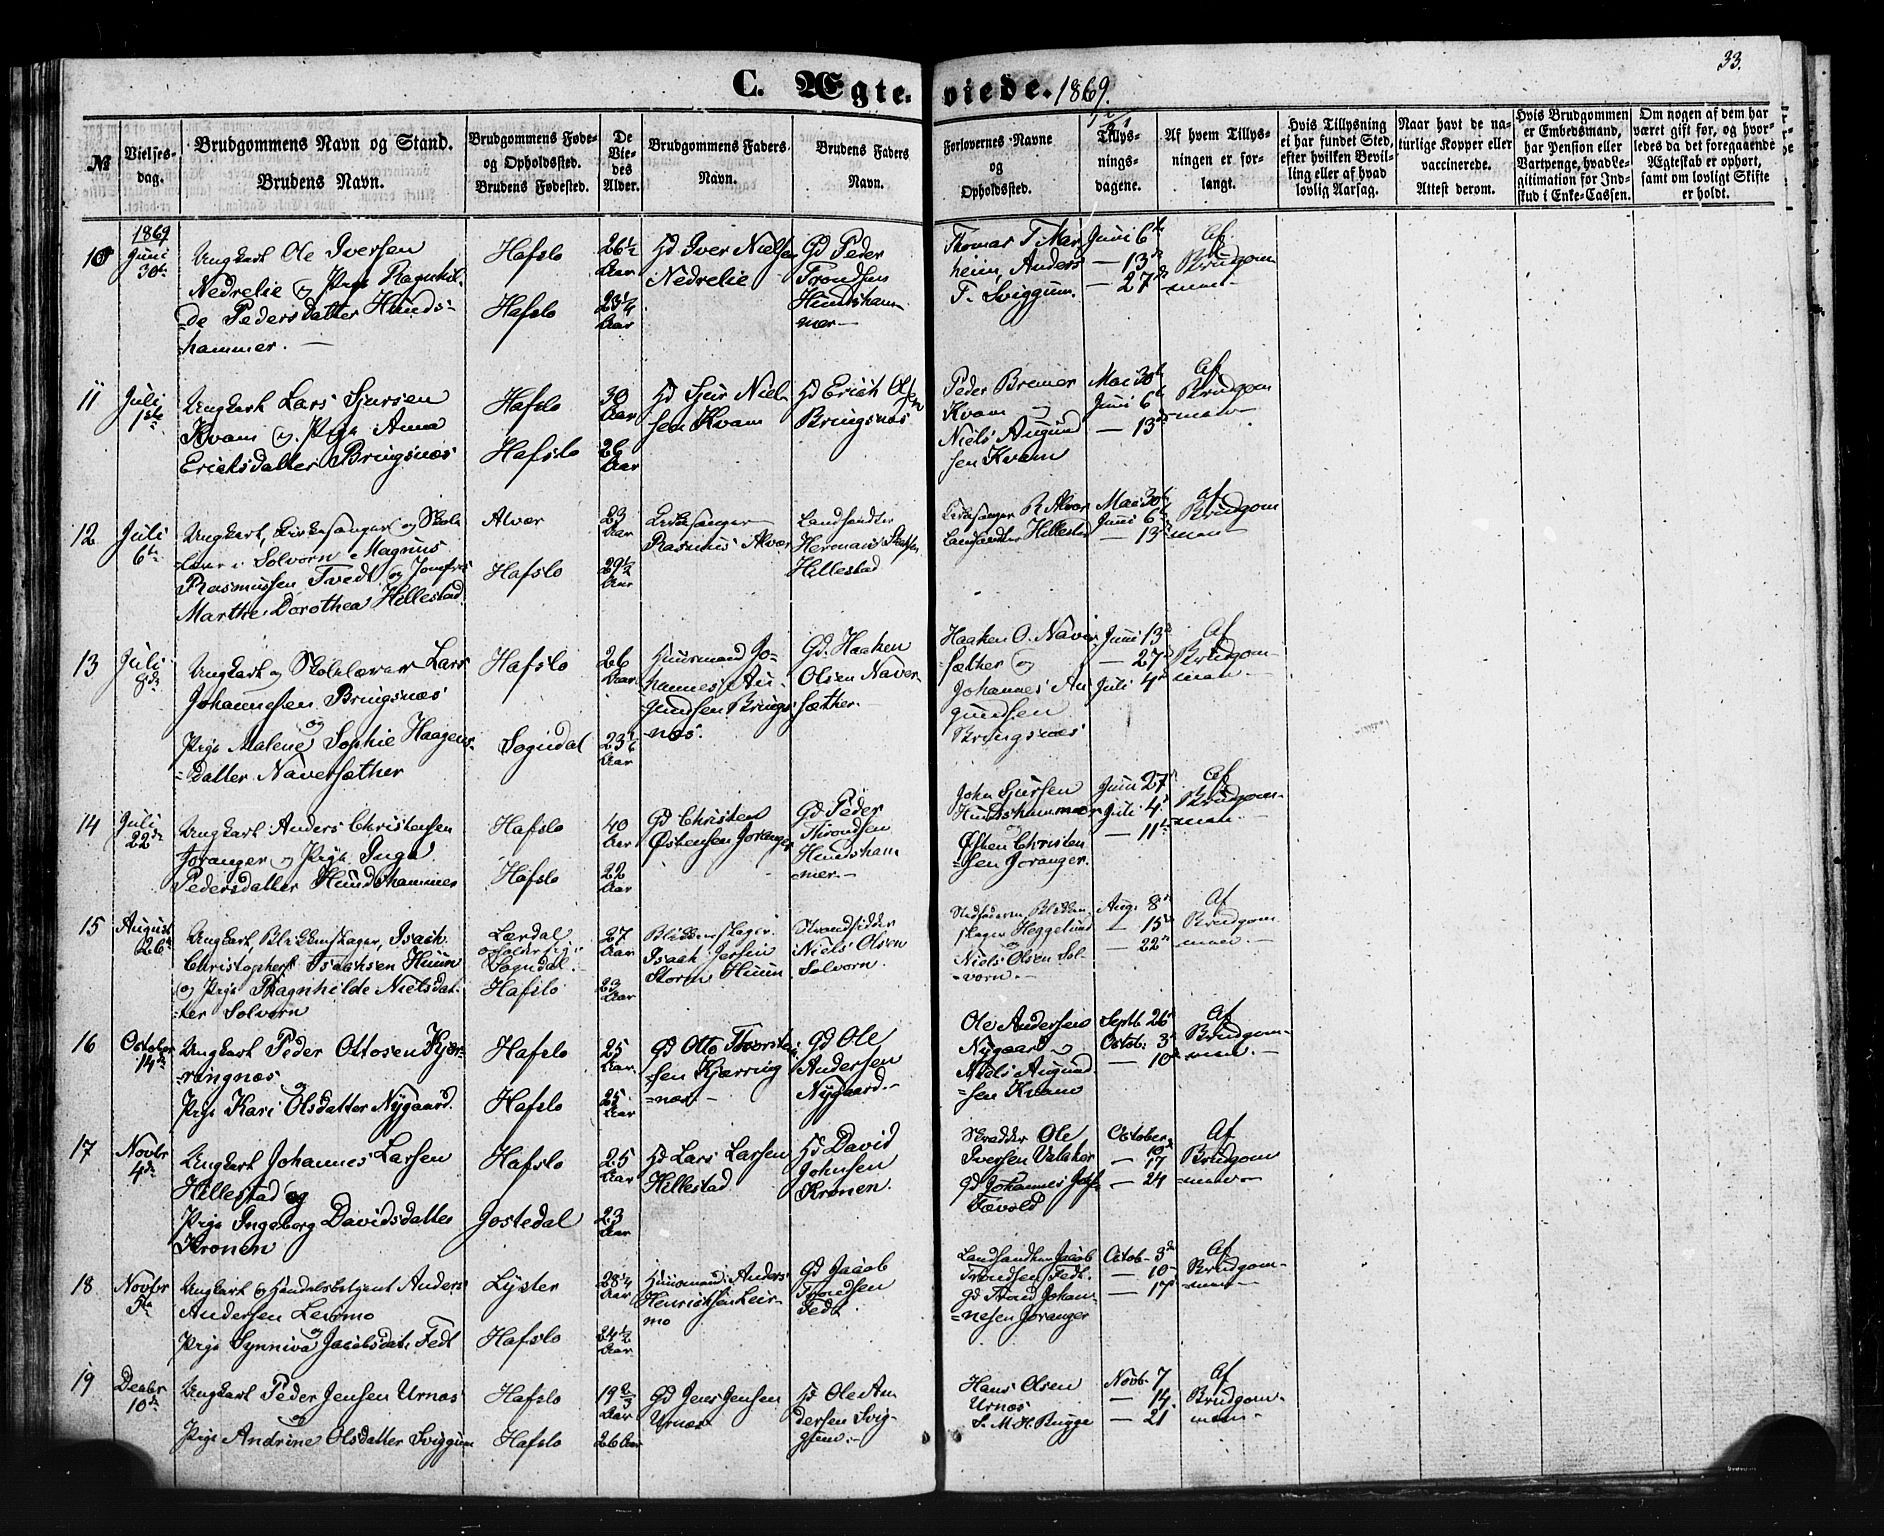 33.
C. Ægte-viede. 1869.
№
Vielses-dag.
Brudgommens Navn og Stand.
Brudens Navn.
Brudgommens Føde- og Opholdssted.
Brudens Fødested.
De Viedes Alder.
Brudgommens Faders Navn.
Brudens Faders Navn.
Forlovernes Navne og Opholdssted.
Tillysningsdagene.
Af hvem Tillysningen er forlangt.
Hvis Tillysning ei har fundet Sted, efter hvilken Bevilling eller af hvad lovlig Aarsag.
Naar havt de naturlige Kopper eller vaccinerede. Attest derom.
Hvis Brudgommen er Embedsmand, har Pension eller Vartpenge, hvad Legitimation for Indskud i Enke-Cassen.
Om nogen af dem har været gift før, og hvorledes da det foregaaende Ægteskab er ophørt, samt om lovligt Skifte er holdt.
1869
10 Juni 30te
Ungkarl Ole Iversen
Nedrelie og Pige Ragnhil-
=de Pedersdatter Hunds-
hammer. —
Hafslo
Hafslo
26½ Aar
23¼ Aar
Gd Iver Nielsen
Nedrelie
Gd Peder
Trondsen
Hundsham-
mer —
Thomas T. Mar
heim, Anders
T. Sviggum.
Juni 6te
— 13de
— 27de
Af
Brudgom
man —
11 Juli 1ste
Ungkarl Lars Sjursen
Kvam og Pige Anna
Erichsdatter Bringsnæs
Hafslo
Hafslo
30 Aar
26 Aar
Gd Sjur Niel-
sen Kvam
Gd Erich Olsen
Bringsnæs
Peder Bremer
Kvam og
Niels Augund
sen Kvam
Mai 30te
Juni 6te
— 13de
Af
Brudgom
man
12 Juli 6te
Ungkarl, Kirkesanger og Skole
Lærer i Solvorn Magnus
Rasmussen Tvedt og Jomfru
Marthe Dorothea Hillestad.
Alver
Hafslo
23 Aar
29½ Aar
Kirkesanger
Rasmus Alver
Landhandler
Herman
Hillestad
Kirkesanger R. Alver
Landhandler Hillestad
Mai 30te
Juni 6te
— 13de
Af
Brudgom
man
13 Juli 8de
Ungkarl og Skolelærer Lars
Johannesen Bringsnæs
og
Pige Malene Sophie Haagens-
=datter Naversæther
Hafslo
Sogndal
26 Aar
23 Aar
Huusmand Jo-
hannes Au-
gundsen Brings-
næs.
Gd. Haaken
Olsen Naver-
sæther.
Haaken O. Naver
sæther og
Johannes Au
gundsen
Bringsnæs
Juni 13de
— 27de
Juli 4de
Af
Brudgom-
man.
14 Juli 22de
Ungkarl Anders Christensen
Joranger og Pige Inga
Pedersdatter Hundshammer
Hafslo
Hafslo
40 Aar
22 Aar
Gd Christen
Østensen Joranger
Gd Peder
Throndsen
Hundsham
mer.—
John Sjursen
Hundshammer
og
Østen Christen
=sen Joranger.
Juni 27de
Juli 4de
— 11te
Af
Brudgom-
man.—
15 August 26de
Ungkarl, Blikkenslager, Isach
Christopher Isachsen Huun
og Pige Ragnhilde Nielsdat-
ter Solvorn
Lærdal
opholder sig i
Sogndal.
Hafslo
27 Aar
23 Aar
Blikkenslager
Isach Jersin
Storm Huun
Strandsidder
Niels Olsen
Solvorn.
Stedfaderen Blikken
slager Heggelund
og
Niels Olsen Sol-
vorn.—
Aug. 8de
— 15de
— 22de
Af
Brudgom
man.—
16 October 14de
Ungkarl Peder Ottosen Kjær-
ringnæs
og
Pige Kari Olsdatter Nygaard.
Hafslo
Hafslo
25 Aar
25 Aar
Gd Otto Thorsten-
sen Kjærring
=næs —
Gd Ole
Andersen
Nygaard.—
Ole Andersen
Nygaard og
Niels Augund
=sen Kvam
Septb. 26de
Octob: 3de
— 10de
Af
Brudgom-
man.—
17 Novbr 4de
Ungkarl Johannes Larsen
Hillestad og
Pige Ingeborg Davidsdatter
Kronen
Hafslo
Jostedal
25 Aar
23 Aar
Gd Lars Larsen
Hillestad
Gd David
Johnsen
Kronen.
Skrædder Ole
Iversen Valaker
Gd Johannes
Favold
October
10
— 17
— 24
Af
Brudgom
=man
18 Novbr
Ungkarl og Handelsbetjent Anders
Andersen Leirmo
og
Pige Synniva Jacobsdat: Fedt
Lyster
Hafslo
28¼ Aar
24½ Aar
Huusmand Anders
Henrichsen Leir-
mo
Gd Jacob
Trondsen
Fedt
Landhandler Jacob
Trondsen Fedt.
Gd Trond Johan-
=nesen Joranger
Octob- 3de
— 10de
— 17de
Af
Brudgom-
man —
19 Decbr 10de
Ungkarl Peder Jensen Urnæs
og
Pige Andrine Olsdatter Sviggum
Hafslo
Hafslo
19⅔ Aar
26 Aar
Gd Jens Jensen
Urnæs
Gd Ole An
dersen Svig-
gum.—
Hans Olsen
Urnæs
S. M. H. Bugge
Novb- 7
— 14
— 21
Af
Brudgom-
man —